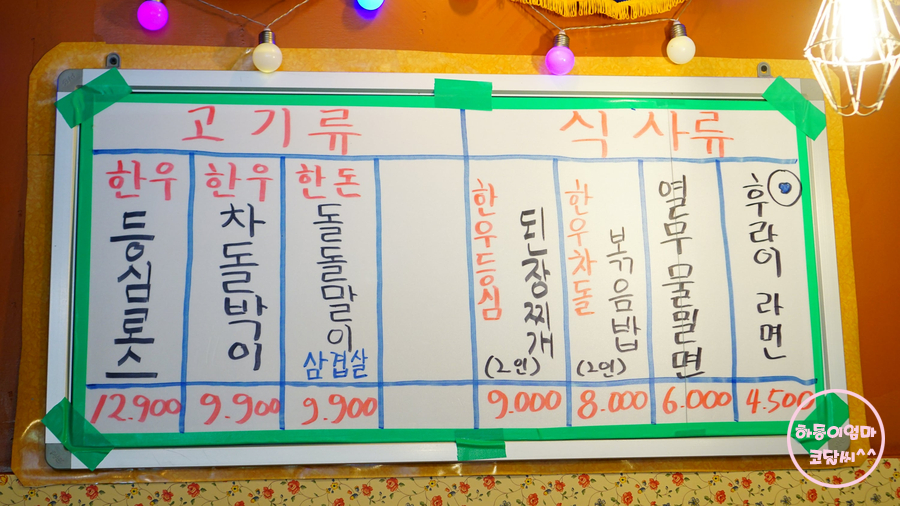 고기류
식사류
한우
등심로스
12.900
한우
차돌박이
9.900
한돈
돌돌말이
삼겹살
9.900
한우등심
된장찌개
(2인)
9.000
한우차돌
볶음밥
(2인)
8.000
열무물밀면
6.000
후라이 라면
4.500
하몽이엄마
코닮씨^^